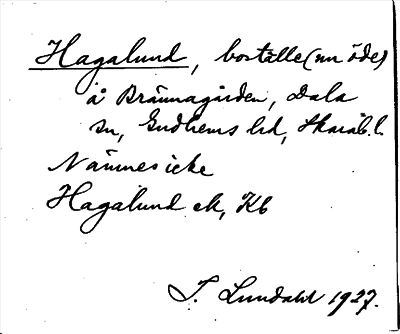 Hagalund, boställe (nu öde)
å Brännagården, Dala
sn, Gudhems hd, Skarab. l.
Nämnes icke
Hagalund ek, Kb
I. Lundahl 1927.